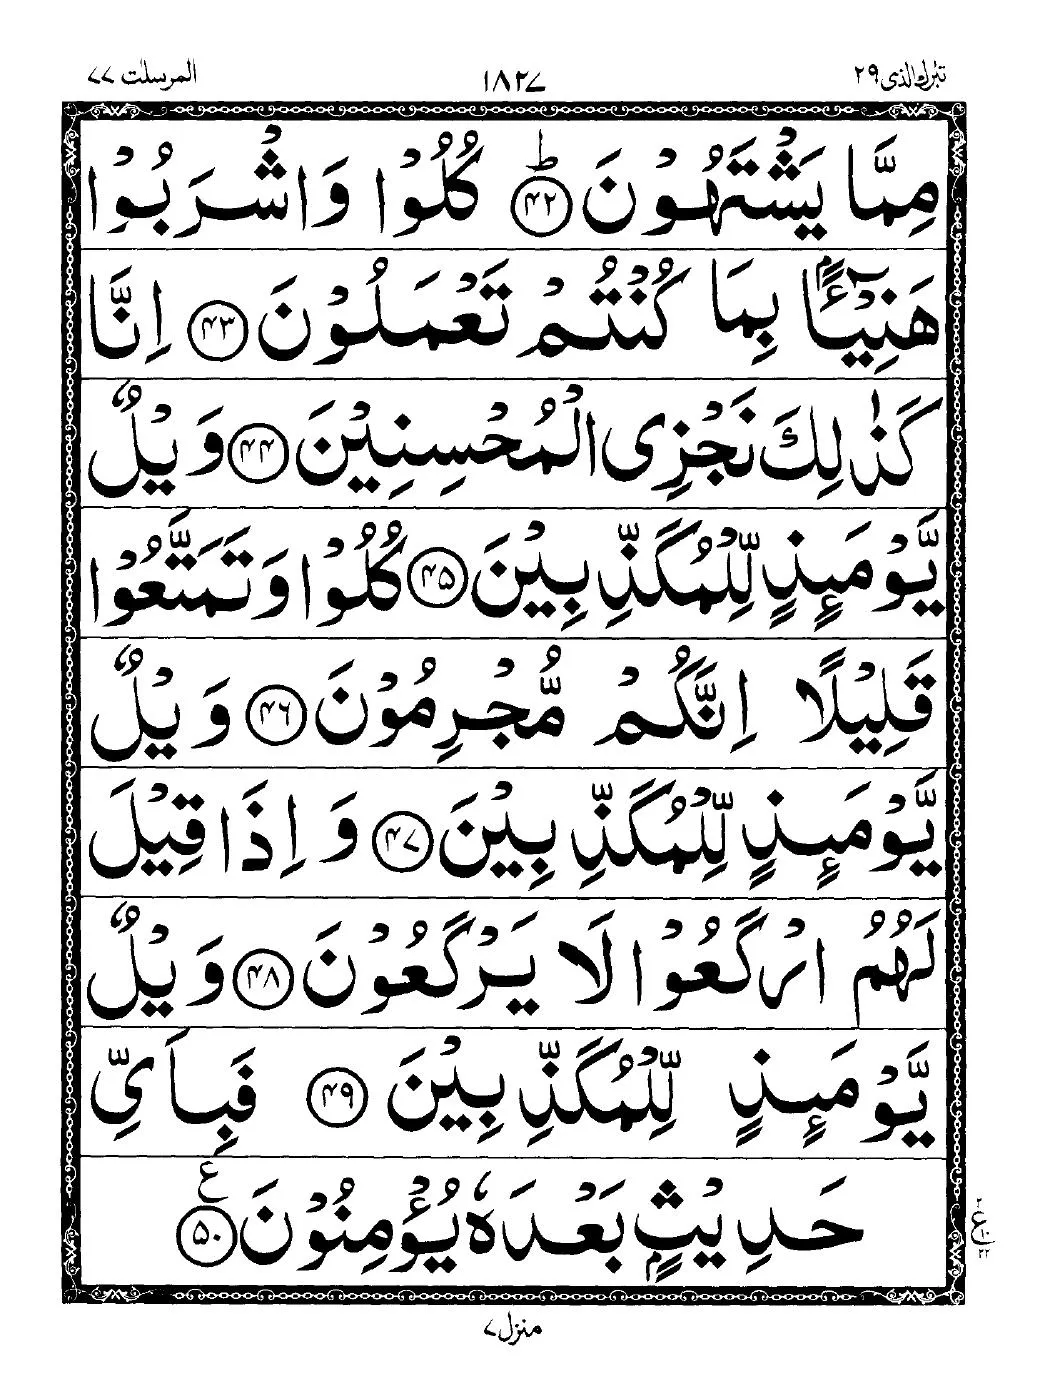 تبٰرك الذی ۲۹ ۱۸۲۷ المرسلٰت ۷۷
مِمَّا يَشْتَهُوْنَ ؕ ﴿۴۲﴾ كُلُوْا وَاشْرَبُوْا
هَنِيْٓئًاۢ بِمَا كُنْتُمْ تَعْمَلُوْنَ ﴿۴۳﴾ اِنَّا
كَذٰلِكَ نَجْزِی الْمُحْسِنِيْنَ ﴿۴۴﴾ وَيْلٌ
يَّوْمَئِذٍ لِّلْمُكَذِّبِيْنَ ﴿۴۵﴾ كُلُوْا وَتَمَتَّعُوْا
قَلِيْلًا اِنَّكُمْ مُّجْرِمُوْنَ ﴿۴۶﴾ وَيْلٌ
يَّوْمَئِذٍ لِّلْمُكَذِّبِيْنَ ﴿۴۷﴾ وَاِذَا قِيْلَ
لَهُمُ ارْكَعُوْا لَا يَرْكَعُوْنَ ﴿۴۸﴾ وَيْلٌ
يَّوْمَئِذٍ لِّلْمُكَذِّبِيْنَ ﴿۴۹﴾ فَبِاَیِّ
حَدِيْثٍۭ بَعْدَهٗ يُؤْمِنُوْنَ ﴿۵۰﴾ ع
۲
ع ۱۰
۲۲
منزل ۷